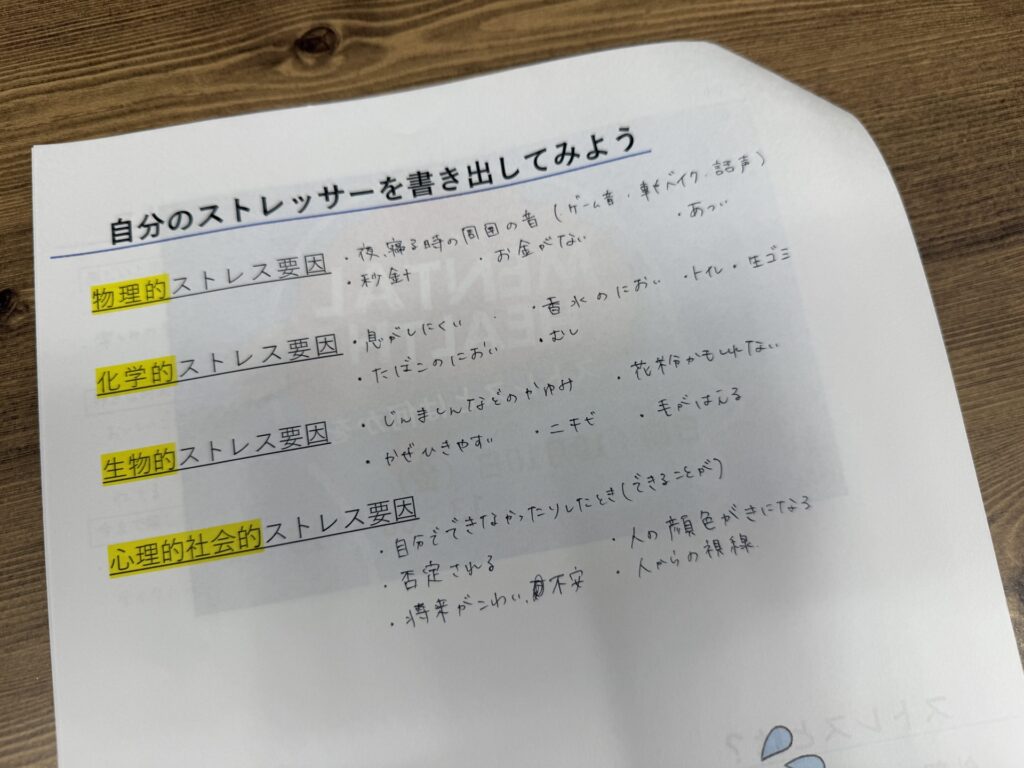 自分のストレッサーを書き出してみよう
物理的ストレス要因
・夜、寝る時の周囲の音(ゲーム音・車やバイク、話声)
・秒針 ・お金がない ・あつい
化学的ストレス要因
・息がしにくい ・香水のにおい ・トイレ・生ゴミ
・たばこのにおい ・むし
生物的ストレス要因
・じんましんなどのかゆみ ・花粉かもしれない
・かぜひきやすい ・ニキビ ・毛がはえる
心理的社会的ストレス要因
・自分でできなかったりしたとき(できることが)
・否定される ・人の顔色がきになる
・将来がこわい、不安 ・人からの視線
MENTAL
HEALTH
ストレスとは?